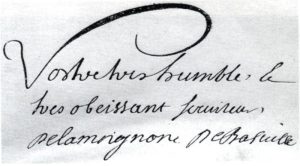 Vostre tres humble, &
tres obeissant seruiteur,
Delamoignon De Basuille